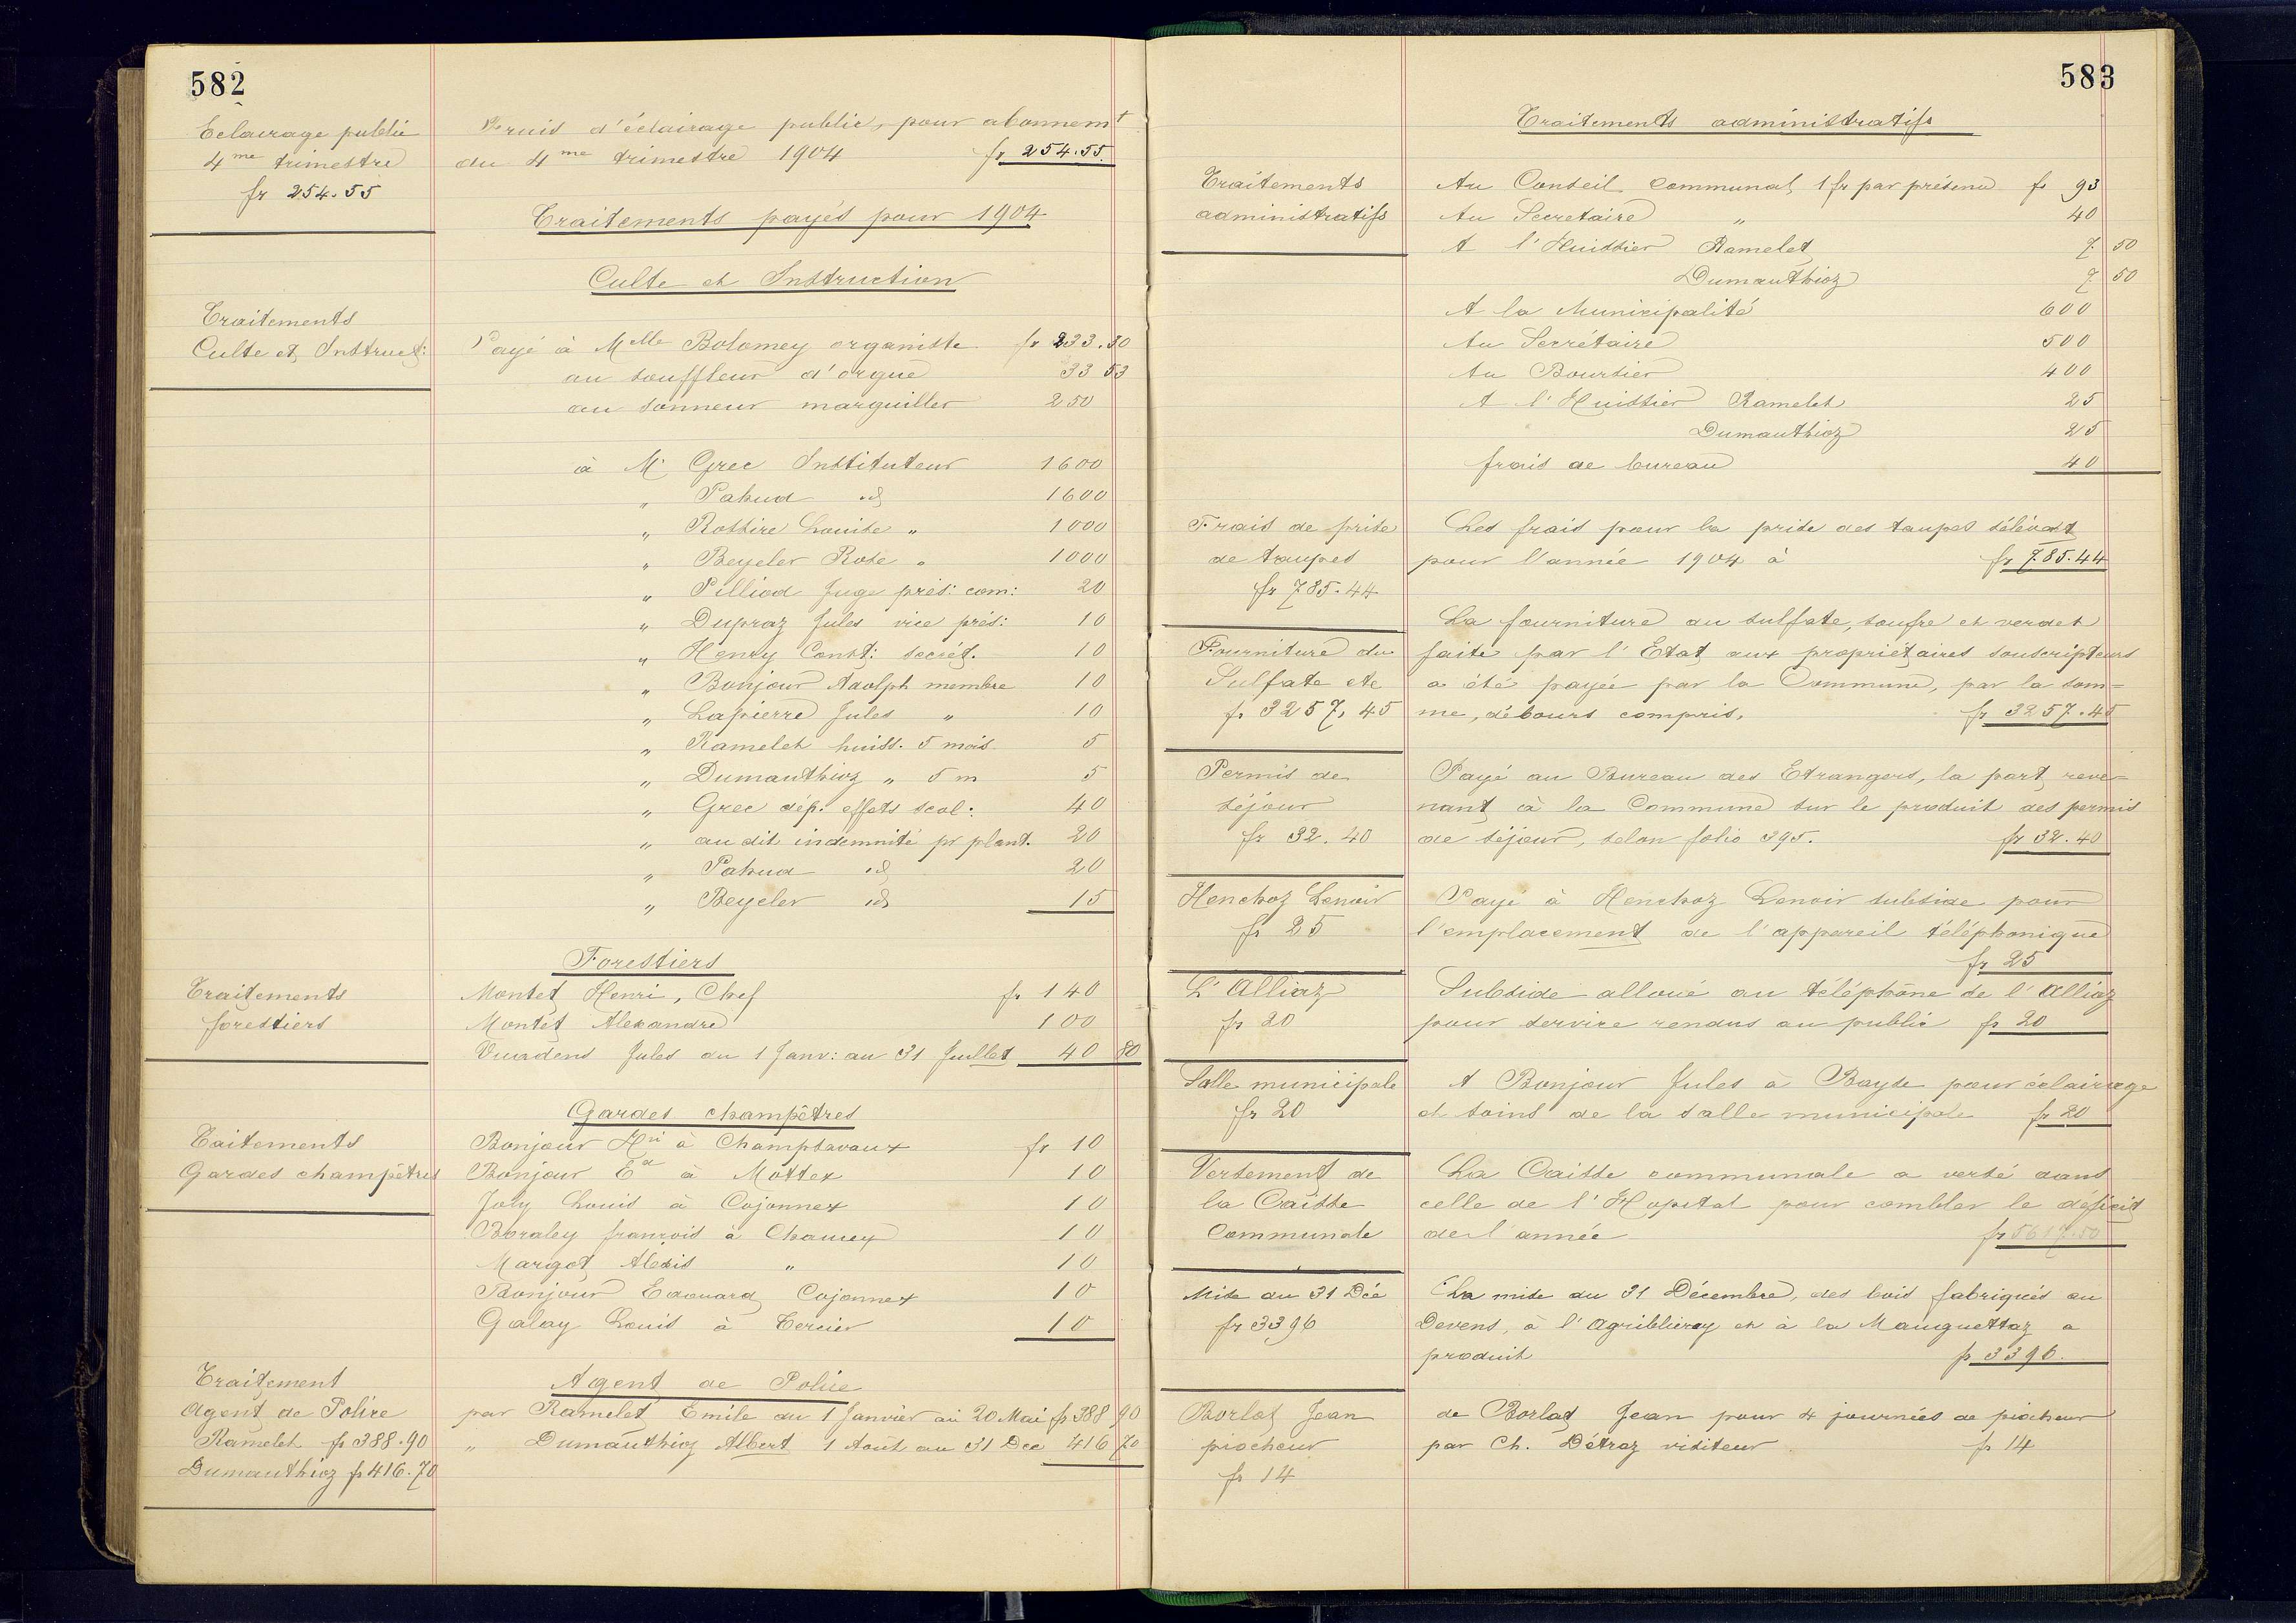 582
Eclairage public
4me trimestre
fr 254.55
du 4me trimestre 1904 fr 254.55
d'éclairage public, pour abonnemt
Traitements payés pour 1904
Culte et Instruction
Traitements
Culte et Instruct:
Payé à Melle Bolomey organiste fr 233.30
au souffleur d'orgue 33 53
au sonneur marguiller 250
à M. Grec Instituteur 1600
" Pahud id 1600
" Rossire Louise " 1000
" Beyeler Rose " 1000
" Pilliod Juge prés: com: 20
" Dupraz Jules vice prés: 10
" Henry Const: secrét. 10
" Bonjour Adolph membre 10
" Lapierre Jules " 10
" Ramelet huiss. 5 mois 5
" Dumauthioz " 5 m 5
" Grec dép: effets scol: 40
" au dit indemnité pr plant. 20
" Pahud id 20
" Beyeler id 15
Forestiers
Traitements
forestiers
Montet Henri, Chef fr 140
Montet Alexandre 100
Vuadens Jules du 1 Janv: au 31 Juillet 40 80
Gardes champêtres
Taitements
Gardes champêtres
Bonjour Hri à Champsavaux fr 10
Bonjour Ed à Mottex 10
Joly Louis à Cojonnex 10
Boraley françois à Chaucey 10
Margot Alexis " 10
Bonjour Edouard Cojonnex 10
Galay Louis à Tercier 10
Agent de Police
Traitement
Agent de Police
Ramelet fr 388.90
Dumauthioz fr 416.70
par Ramelet Emile du 1 Janvier au 20 Mai fr 388 90
" Dumauthioz Albert 1 Août au 31 Dec 416 70
583
Traitements administratifs
Traitements
administratifs
Au Conseil communal, 1 fr par présence fr 93
Au Secretaire " 40
A l'Huissier Ramelet 7. 50
Dumauthioz 7. 50
A la Municipalité 600
Au Secrétaire 500
Au Boursier 400
A l'Huissier Ramelet 25
Dumauthioz 25
frais de bureau 40
Frais de prise
de taupes
fr 785.44
Les frais pour la prise des taupes s'élèvent
pour l'année 1904 à fr 785.44
Fourniture du
Sulfate etc
fr 3257,45
La fourniture du sulfate, soufre et verdet
faite par l'Etat aux propriétaires souscripteurs
a été payée par la Commune, par la som=
me, débours compris, fr 3257.45
Permis de
séjour
fr 32.40
Payé au Bureau des Etrangers, la part reve=
nant à la Commune sur le produit des permis
de séjour, selon folio 395. fr 32.40
Henchoz Lenoir
fr 25
Payé à Henchoz Lenoir subside pour
l'emplacement de l'appareil téléphonique
fr 25
L'Alliaz
fr 20
Subside alloué au téléphone de l'Alliaz
pour service rendus au public fr 20
Salle municipale
fr 20
A Bonjour Jules à Bayse pour éclairage
et soins de la salle municipale fr 20
Versement de
la Caisse
Communale
La Caisse communale a versé dans
celle de l'Hopital pour combler le déficit
de l'année fr 5617.50
Mise du 31 Déc
fr 3396
La mise du 31 Décembre, des bois fabriqués au
Devens, à l'Agriblierey et à la Mauguettaz a
produit fr 3396.
Borlat Jean
piocheur
fr 14
de Borlat Jean pour 4 journées de piocheur
par Ch. Détraz visiteur fr 14